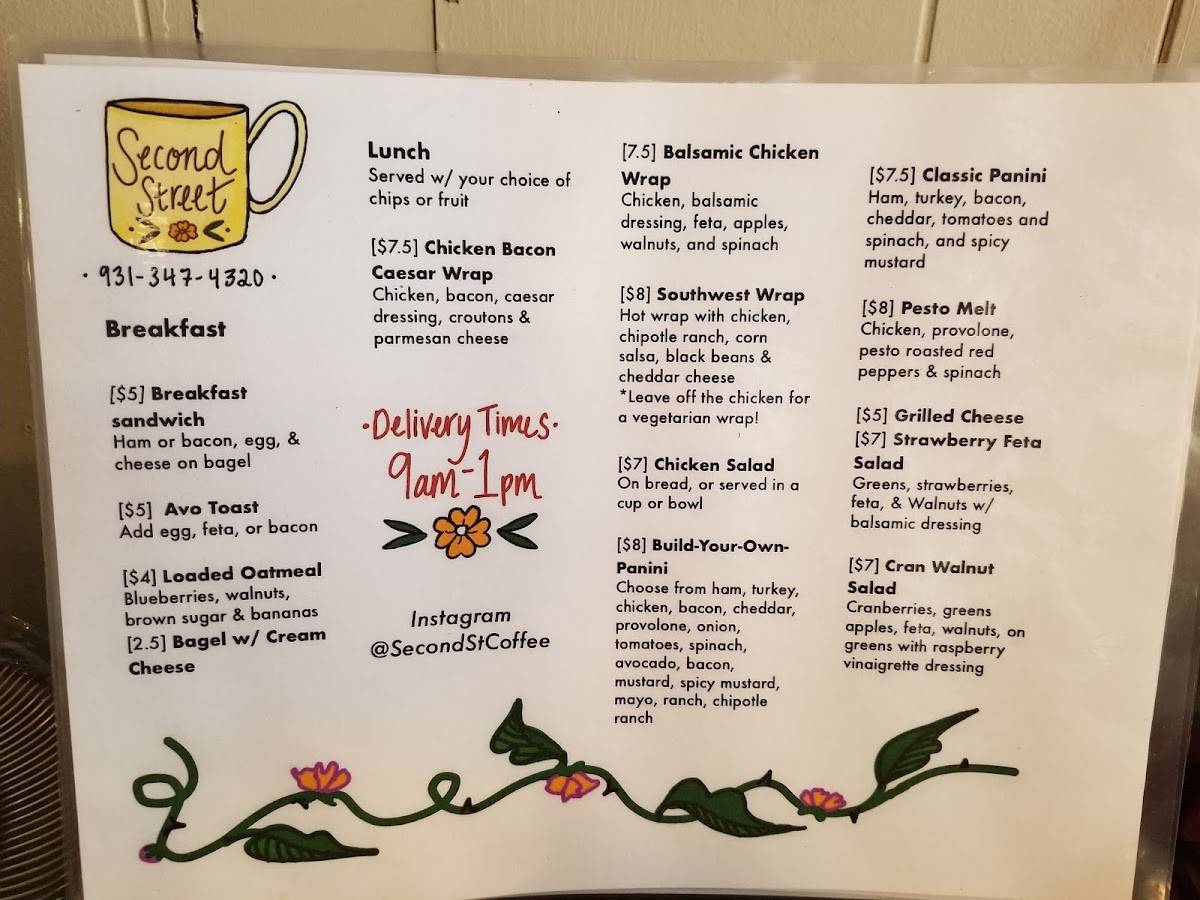 Second
Street
· 931-347-4320 ·
Breakfast
[$5] Breakfast
sandwich
Ham or bacon, egg, &
cheese on bagel
[$5] Avo Toast
Add egg, feta, or bacon
[$4] Loaded Oatmeal
Blueberries, walnuts,
brown sugar & bananas
[2.5] Bagel w/ Cream
Cheese
Lunch
Served w/ your choice of
chips or fruit
[$7.5] Chicken Bacon
Caesar Wrap
Chicken, bacon, caesar
dressing, croutons &
parmesan cheese
·Delivery Times·
9am-1pm
Instagram
@SecondStCoffee
[7.5] Balsamic Chicken
Wrap
Chicken, balsamic
dressing, feta, apples,
walnuts, and spinach
[$8] Southwest Wrap
Hot wrap with chicken,
chipotle ranch, corn
salsa, black beans &
cheddar cheese
*Leave off the chicken for
a vegetarian wrap!
[$7] Chicken Salad
On bread, or served in a
cup or bowl
[$8] Build-Your-Own-
Panini
Choose from ham, turkey,
chicken, bacon, cheddar,
provolone, onion,
tomatoes, spinach,
avocado, bacon,
mustard, spicy mustard,
mayo, ranch, chipotle
ranch
[$7.5] Classic Panini
Ham, turkey, bacon,
cheddar, tomatoes and
spinach, and spicy
mustard
[$8] Pesto Melt
Chicken, provolone,
pesto roasted red
peppers & spinach
[$5] Grilled Cheese
[$7] Strawberry Feta
Salad
Greens, strawberries,
feta, & Walnuts w/
balsamic dressing
[$7] Cran Walnut
Salad
Cranberries, greens
apples, feta, walnuts, on
greens with raspberry
vinaigrette dressing